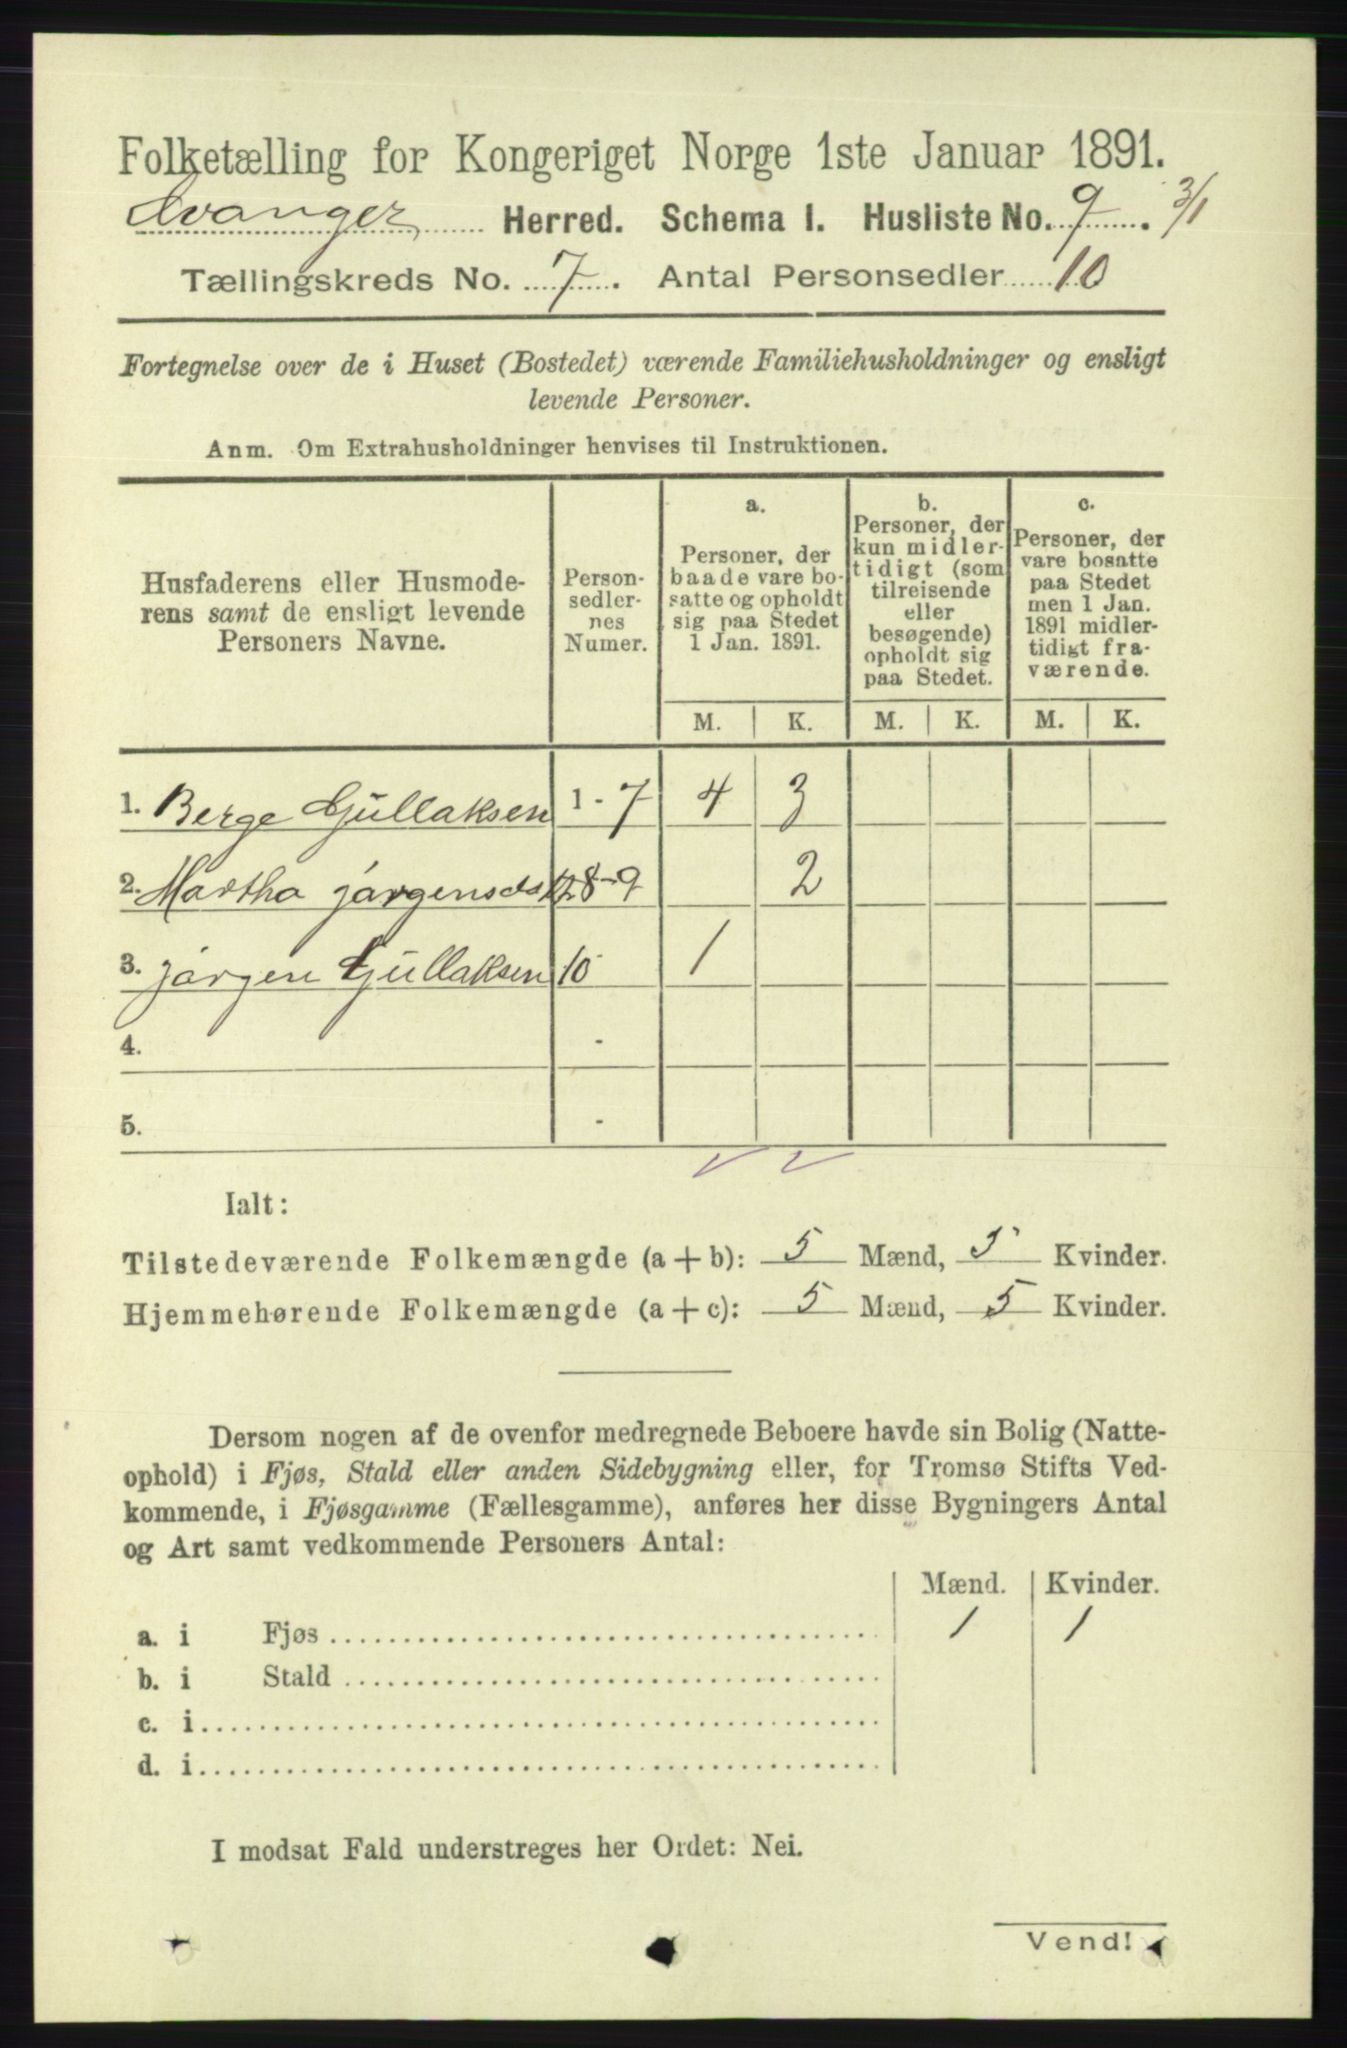 Folketælling for Kongeriget Norge 1ste Januar 1891.
Evanger Herred. Schema I. Husliste No. 9. 3/1
Tællingskreds No. 7. Antal Personsedler 10
Fortegnelse over de i Huset (Bostedet) værende Familiehusholdninger og ensligt
levende Personer.
Anm. Om Extrahusholdninger henvises til Instruktionen.
Husfaderens eller Husmode-
rens samt de ensligt levende
Personers Navne.
Person-
sedler-
nes
Numer.
a.
Personer, der
baade vare bo-
satte og opholdt
sig paa Stedet
1 Jan. 1891.
b.
Personer, der
kun midler-
tidigt (som
tilreisende
eller
besøgende)
opholdt sig
paa Stedet.
c.
Personer, der
vare bosatte
paa Stedet
men 1 Jan.
1891 midler-
tidigt fra-
værende.
M. K. M. K. M. K.
1. Berge Gjullaksen 1 - 7 4 3
2. Martha Jørgensdt 8-9 2
3. Jørgen Gjullaksen 10 1
4. -
5. -
Ialt:
Tilstedeværende Folkemængde (a + b): 5 Mænd, 5 Kvinder.
Hjemmehørende Folkemængde (a + c): 5 Mænd, 5 Kvinder.
Dersom nogen af de ovenfor medregnede Beboere havde sin Bolig (Natte-
ophold) i Fjøs, Stald eller anden Sidebygning eller, for Tromsø Stifts Ved-
kommende, i Fjøsgamme (Fællesgamme), anføres her disse Bygningers Antal
og Art samt vedkommende Personers Antal:
Mænd. Kvinder.
a. i Fjøs 1 1
b. i Stald
c. i
d. i
I modsat Fald understreges her Ordet: Nei.
Vend!